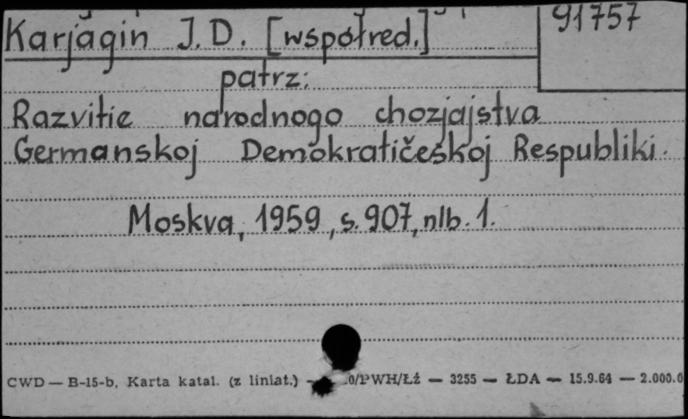 Karjagin J.D. [współred.]
91757
patrz:
Razvitie narodnogo chozjajstva
Germanskoj Demokratičeskoj Respubliki.
Moskva, 1959, s. 907, nlb. 1.
CWD — B-15-b, Karta katal. (z liniat.) — 0/PWH/Łż — 3255 — ŁDA — 15.9.64 — 2.000.0